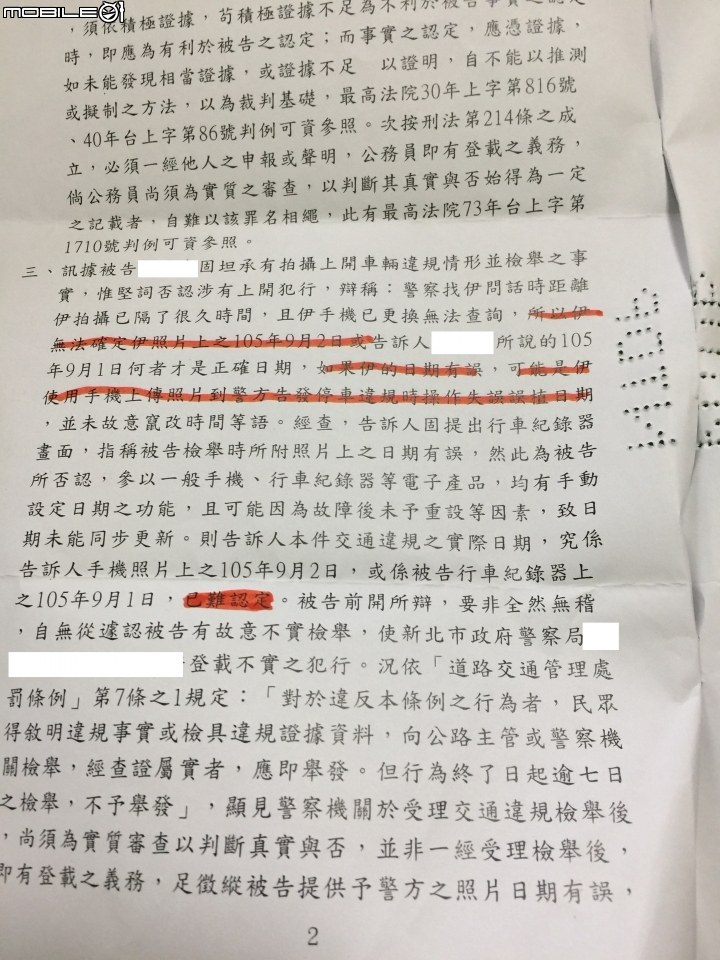 MOBILE01
，須依積極證據，苟積極證據不足為不利於被告事實之認定
時，即應為有利於被告之認定；而事實之認定，應憑證據，
如未能發現相當證據，或證據不足 以證明，自不能以推測
或擬制之方法，以為裁判基礎，最高法院30年上字第816號
、40年台上字第86號判例可資參照。次按刑法第214條之成
立，必須一經他人之申報或聲明，公務員即有登載之義務，
倘公務員尚須為實質之審查，以判斷其真實與否始得為一定
之記載者，自難以該罪名相繩，此有最高法院73年台上字第
1710號判例可資參照。
三、訊據被告 固坦承有拍攝上開車輛違規情形並檢舉之事
實，惟堅詞否認涉有上開犯行，辯稱：警察找伊問話時距離
伊拍攝已隔了很久時間，且伊手機已更換無法查詢，所以伊
無法確定伊照片上之105年9月2日或告訴人 所說的105
年9月1日何者才是正確日期，如果伊的日期有誤，可能是伊
使用手機上傳照片到警方告發停車違規時操作失誤誤植日期
，並未故意竄改時間等語。經查，告訴人固提出行車紀錄器
畫面，指稱被告檢舉時所附照片上之日期有誤，然此為被告
所否認，參以一般手機、行車紀錄器等電子產品，均有手動
設定日期之功能，且可能因為故障後未予重設等因素，致日
期未能同步更新。則告訴人本件交通違規之實際日期，究係
告訴人手機照片上之105年9月2日，或係被告行車紀錄器上
之105年9月1日，已難認定。被告前開所辯，要非全然無稽
，自無從遽認被告有故意不實檢舉，使新北市政府警察局
登載不實之犯行。況依「道路交通管理處
罰條例」第7條之1規定：「對於違反本條例之行為者，民眾
得敘明違規事實或檢具違規證據資料，向公路主管或警察機
關檢舉，經查證屬實者，應即舉發。但行為終了日起逾七日
之檢舉，不予舉發」，顯見警察機關於受理交通違規檢舉後
，尚須為實質審查以判斷真實與否，並非一經受理檢舉後，
即有登載之義務，足徵縱被告提供予警方之照片日期有誤，
2